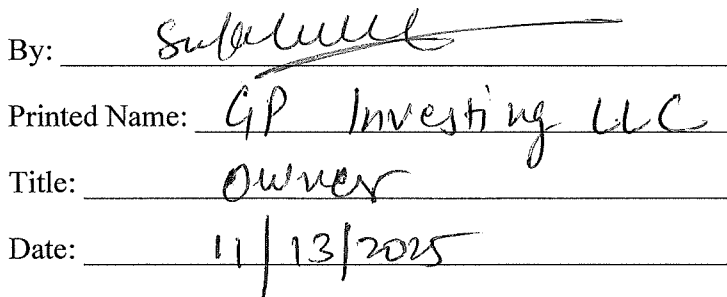 By:
Printed Name: GP Investing LLC
Title: Owner
Date: 11/13/2025